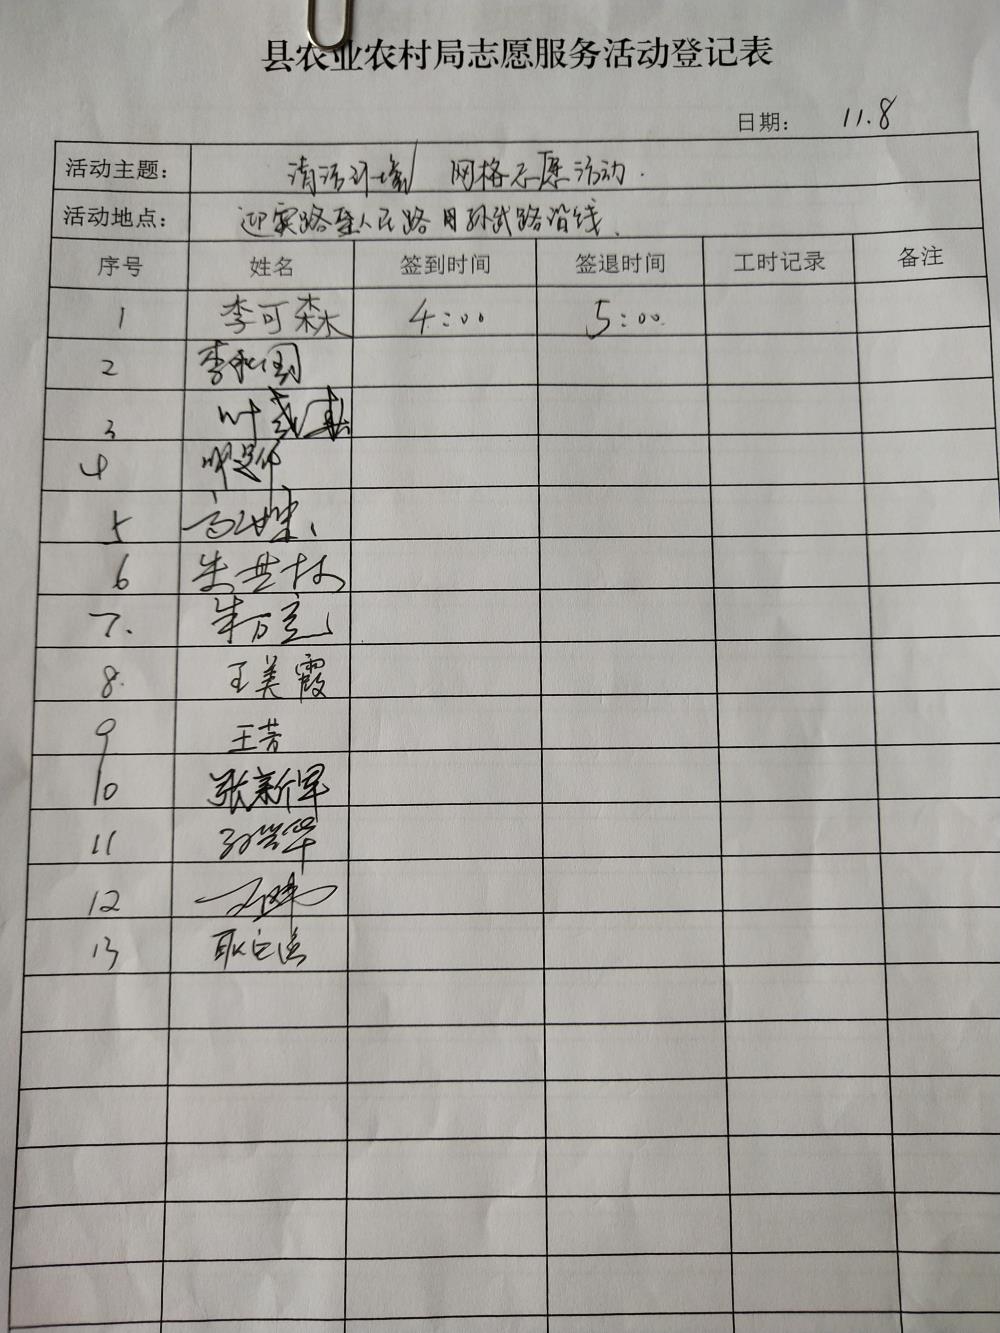 县农业农村局志愿服务活动登记表
日期： 11.8
活动主题： 清洁环境 网格志愿活动.
活动地点： 迎宾路至人民路 孙武路沿线.
序号 姓名 签到时间 签退时间 工时记录 备注
1 李可森 4:00 5:00
2
3
4
5
6 朱世林
7. 朱万亮
8. 王美霞
9 王芳
10 张新军
11
12
13